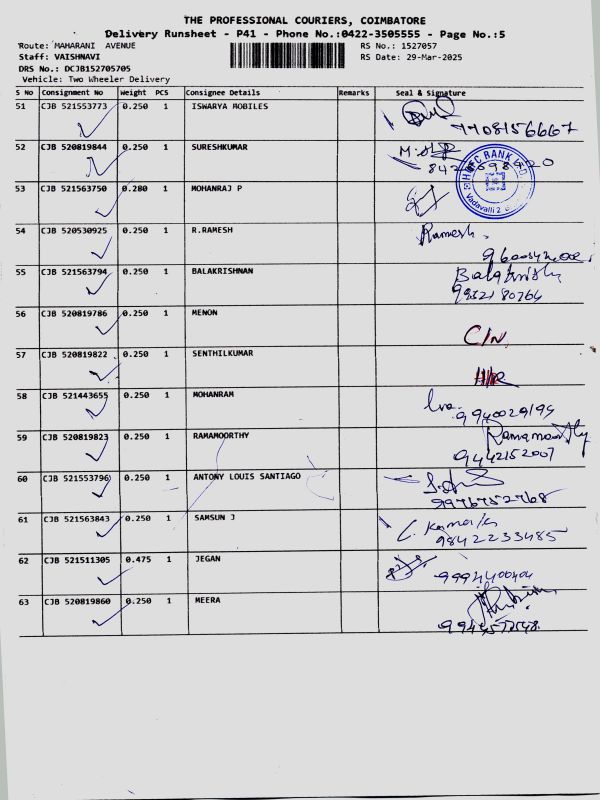 THE PROFESSIONAL COURIERS, COIMBATORE
Delivery Runsheet - P41 - Phone No.:0422-3505555 - Page No.:5
Route: MAHARANI AVENUE RS No.: 1527057
Staff: VAISHNAVI RS Date: 29-Mar-2025
DRS No.: DCJB152705705
Vehicle: Two Wheeler Delivery
S No Consignment No Weight PCS Consignee Details Remarks Seal & Signature
51 CJB 521553773 0.250 1 ISWARYA MOBILES
7708156667
52 CJB 520819844 0.250 1 SURESHKUMAR
HDFC BANK LTD.
Vadavalli
53 CJB 521563750 0.280 1 MOHANRAJ P
54 CJB 520530925 0.250 1 R.RAMESH Ramesh.
55 CJB 521563794 0.250 1 BALAKRISHNAN
9832180764
56 CJB 520819786 0.250 1 MENON
C/N
57 CJB 520819822 0.250 1 SENTHILKUMAR
58 CJB 521443655 0.250 1 MOHANRAM
9940029194
59 CJB 520819823 0.250 1 RAMAMOORTHY Ramamoorthy
9442152007
60 CJB 521553796 0.250 1 ANTONY LOUIS SANTIAGO
9976752768
61 CJB 521563843 0.250 1 SAMSUN J
9842233485
62 CJB 521511305 0.475 1 JEGAN
9994400404
63 CJB 520819860 0.250 1 MEERA